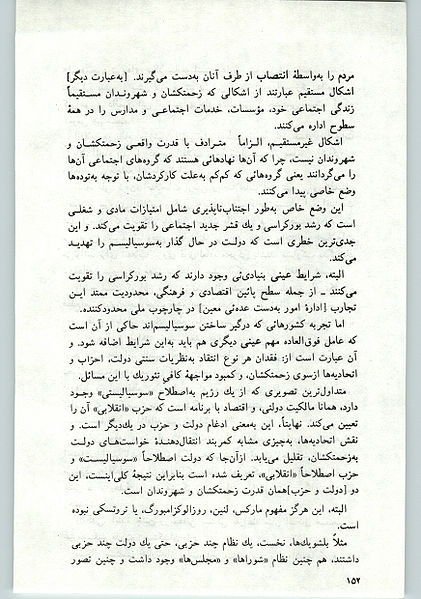 مردم را به‌واسطهٔ انتصاب از طرف آنان به‌دست می‌گیرند. [به‌عبارت دیگر]
اشکال مستقیم عبارتند از اشکالی که زحمتکشان و شهروندان مستقیماً
زندگی اجتماعی خود، مؤسسات، خدمات اجتماعی و مدارس را در همهٔ
سطوح اداره می‌کنند.
اشکال غیرمستقیم، الزاماً مترادف با قدرت واقعی زحمتکشان و
شهروندان نیست، چرا که آن‌ها نهادهائی هستند که گروه‌های اجتماعی آن‌ها
را می‌گردانند یعنی گروه‌هائی که کم‌کم به‌علت کارکردشان، با توجه به‌توده‌ها
وضع خاصی پیدا می‌کنند.
این وضع خاص به‌طور اجتناب‌ناپذیری شامل امتیازات مادی و شغلی
است که رشد بورکراسی و یك قشر جدید اجتماعی را تقویت می‌کند. و این
جدی‌ترین خطری است که دولت در حال گذار به‌سوسیالیسم را تهدید
می‌کند.
البته، شرایط عینی بنیادی‌ئی وجود دارند که رشد بورکراسی را تقویت
می‌کنند ـ از جمله سطح پائین اقتصادی و فرهنگی، محدودیت ممتد این
تجارب [ادارهٔ امور به‌دست عده‌ئی معین] در چارچوب ملی محدودکننده.
اما تجربه کشورهائی که درگیر ساختن سوسیالیسم‌اند حاکی از آن است
که عامل فوق‌العاده مهم عینی دیگری هم باید به‌این شرایط اضافه شود. و
آن عبارت است از: فقدان هر نوع انتقاد به‌نظریات سنتی دولت، احزاب و
اتحادیه‌ها ازسوی زحمتکشان، و کمبود مواجههٔ کافی تئوریك با این مسائل.
متداول‌ترین تصویری که از یك رژیم به‌اصطلاح «سوسیالیستی» وجود
دارد، همانا مالکیت دولتی، و اقتصاد با برنامه است که حزب «انقلابی» آن را
تعیین می‌کند. نهایتاً، این به‌معنی ادغام دولت و حزب در یك‌دیگر است. و
نقش اتحادیه‌ها، به‌چیزی مشابه کمربند انتقال‌دهندهٔ خواست‌های دولت
به‌زحمتکشان، تقلیل می‌یابد. ازآن‌جا که دولت اصطلاحاً «سوسیالیست» و
حزب اصطلاحاً «انقلابی»، تعریف شده است بنابراین نتیجهٔ کلی‌اینست، این
دو [دولت و حزب]همان قدرت زحمتکشان و شهروندان است.
البته، این هرگز مفهوم مارکس، لنین، روزالوکزامبورگ، یا تروتسکی نبوده
است.
مثلاً بلشویك‌ها، نخست، یك نظام چند حزبی، حتی یك دولت چند حزبی
داشتند، هم چنین نظام «شوراها» و «مجلس‌ها» وجود داشت و چنین تصور
۱۵۲